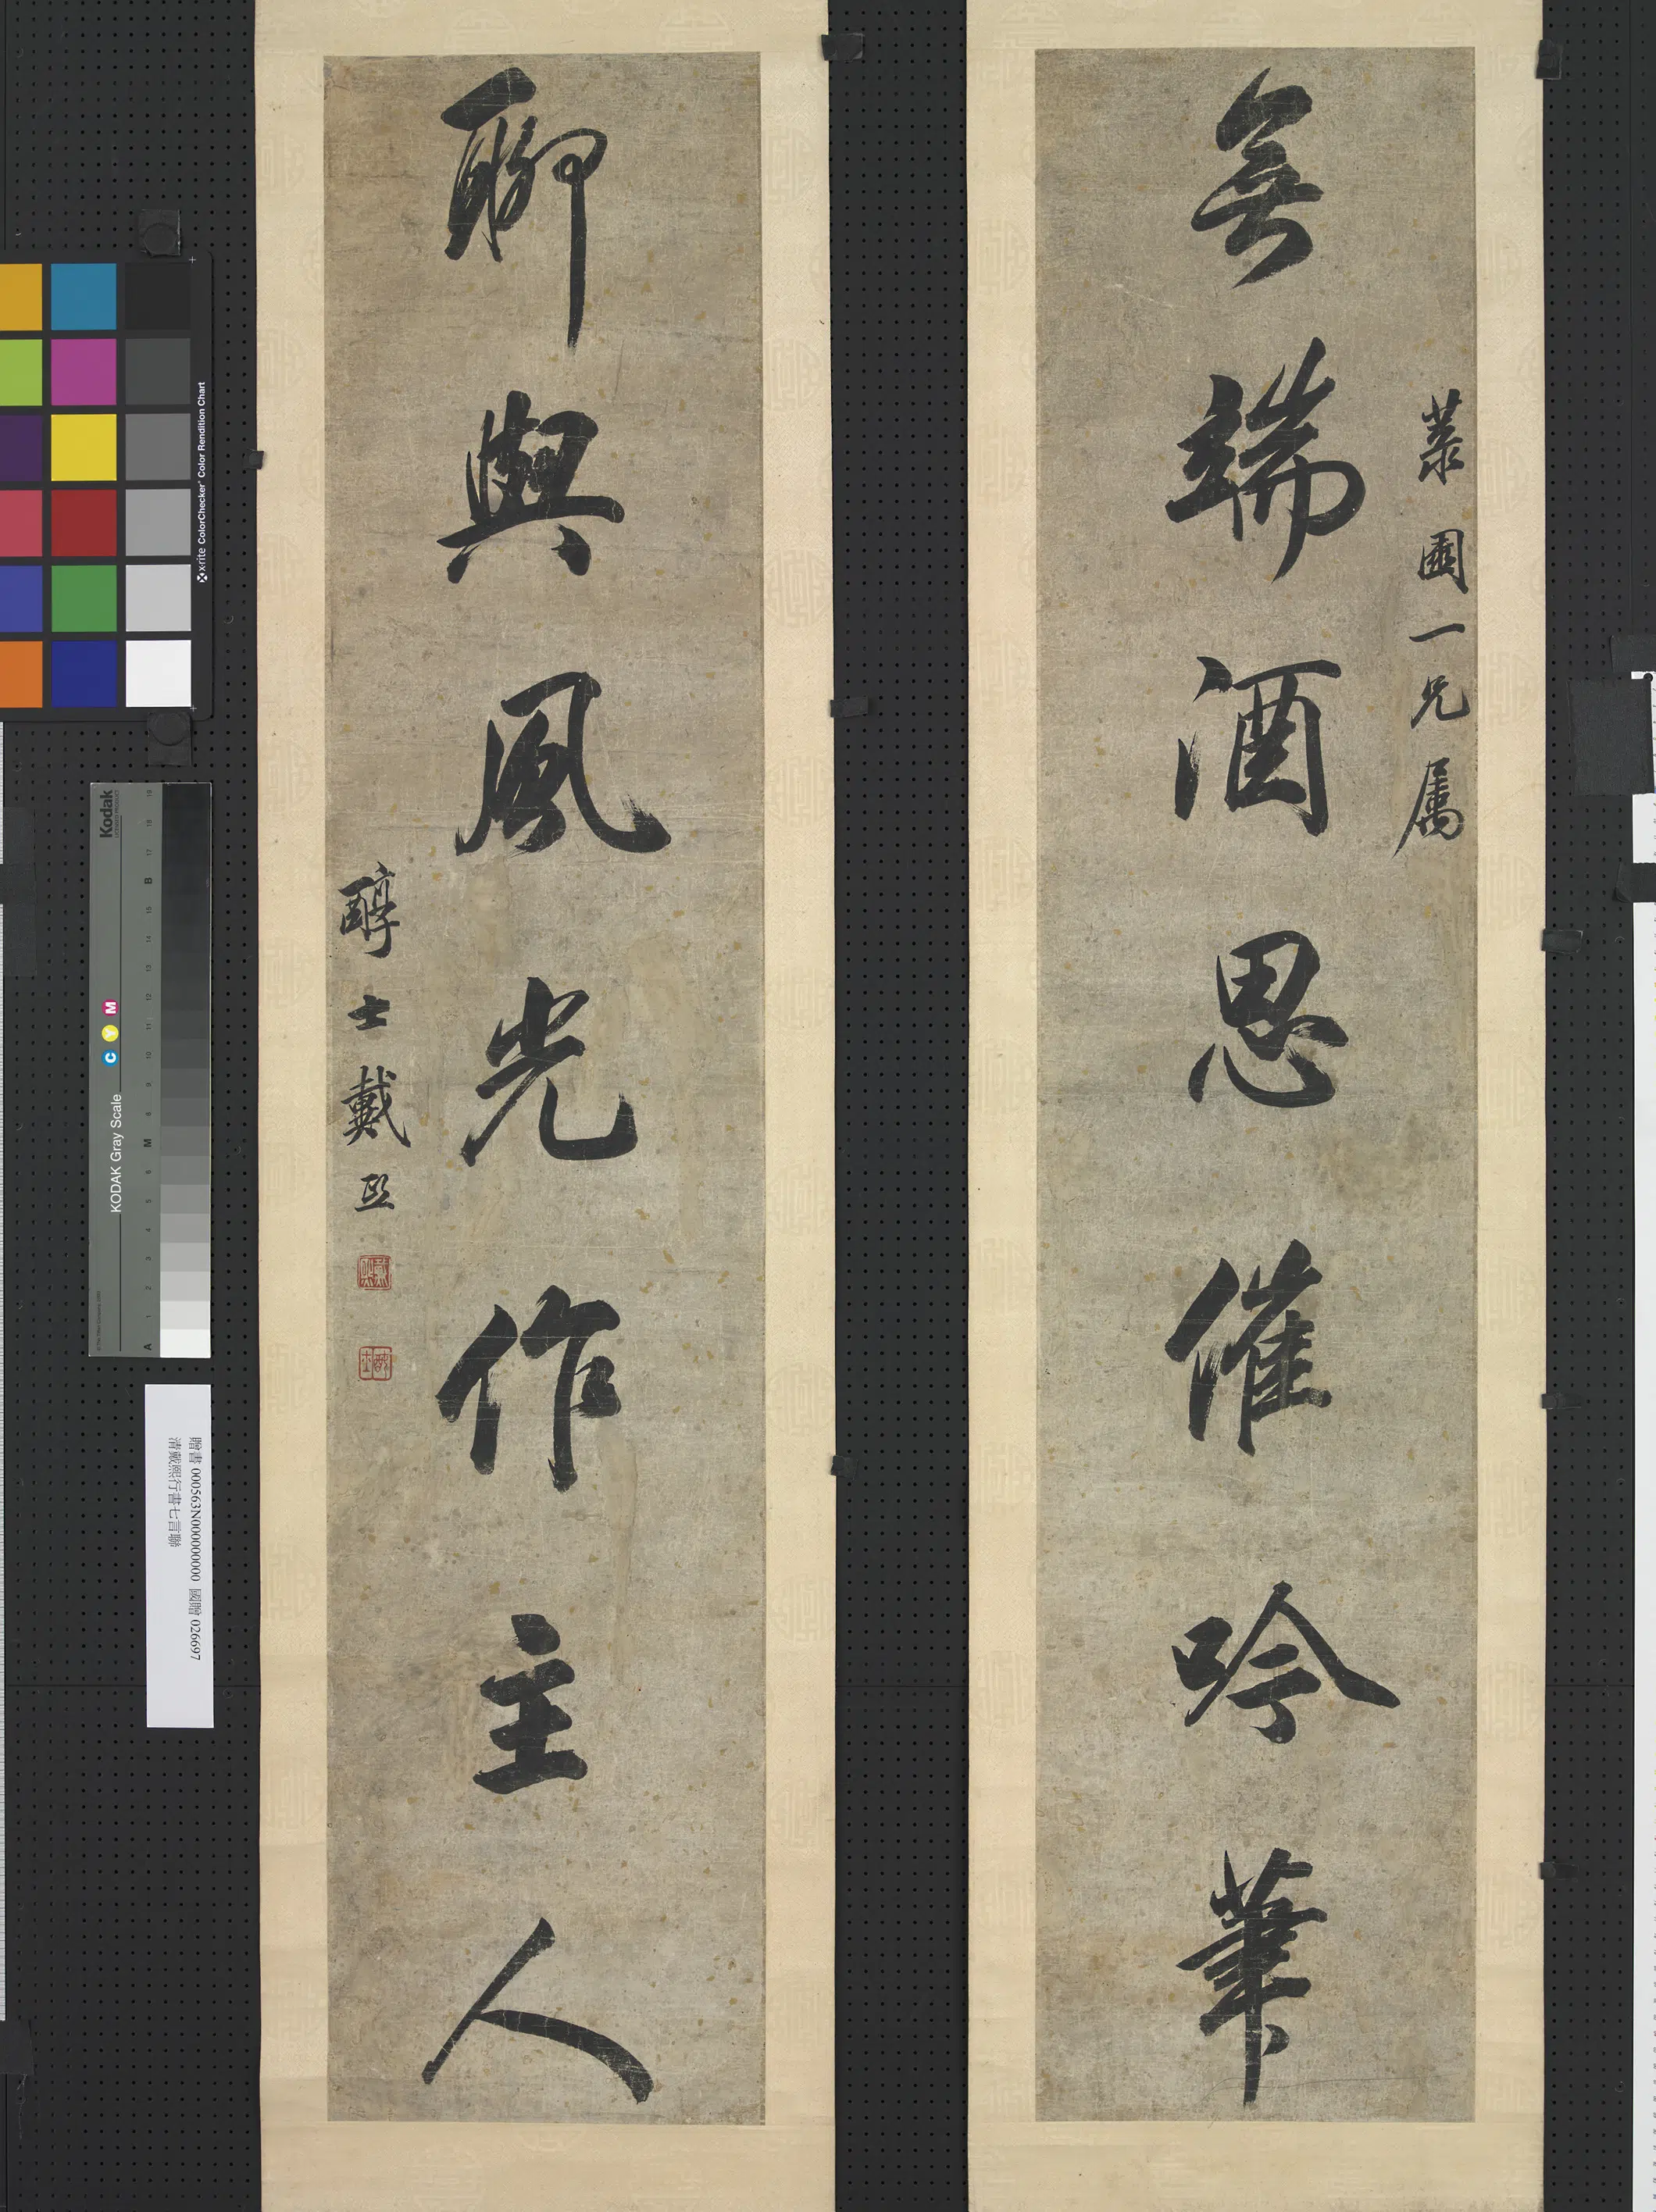 無端酒思催吟筆
菉園一兄属
聊與風光作主人
醇士戴熙
戴熙
醇士
x-rite ColorChecker Color Rendition Chart
Kodak
LICENSED PRODUCT
KODAK Gray Scale
C Y M
A 1 2 3 4 5 6 M 8 9 10 11 12 13 14 15 B 17 18 19
贈書 000563N000000000 國贈 026697
清戴熙行書七言聯